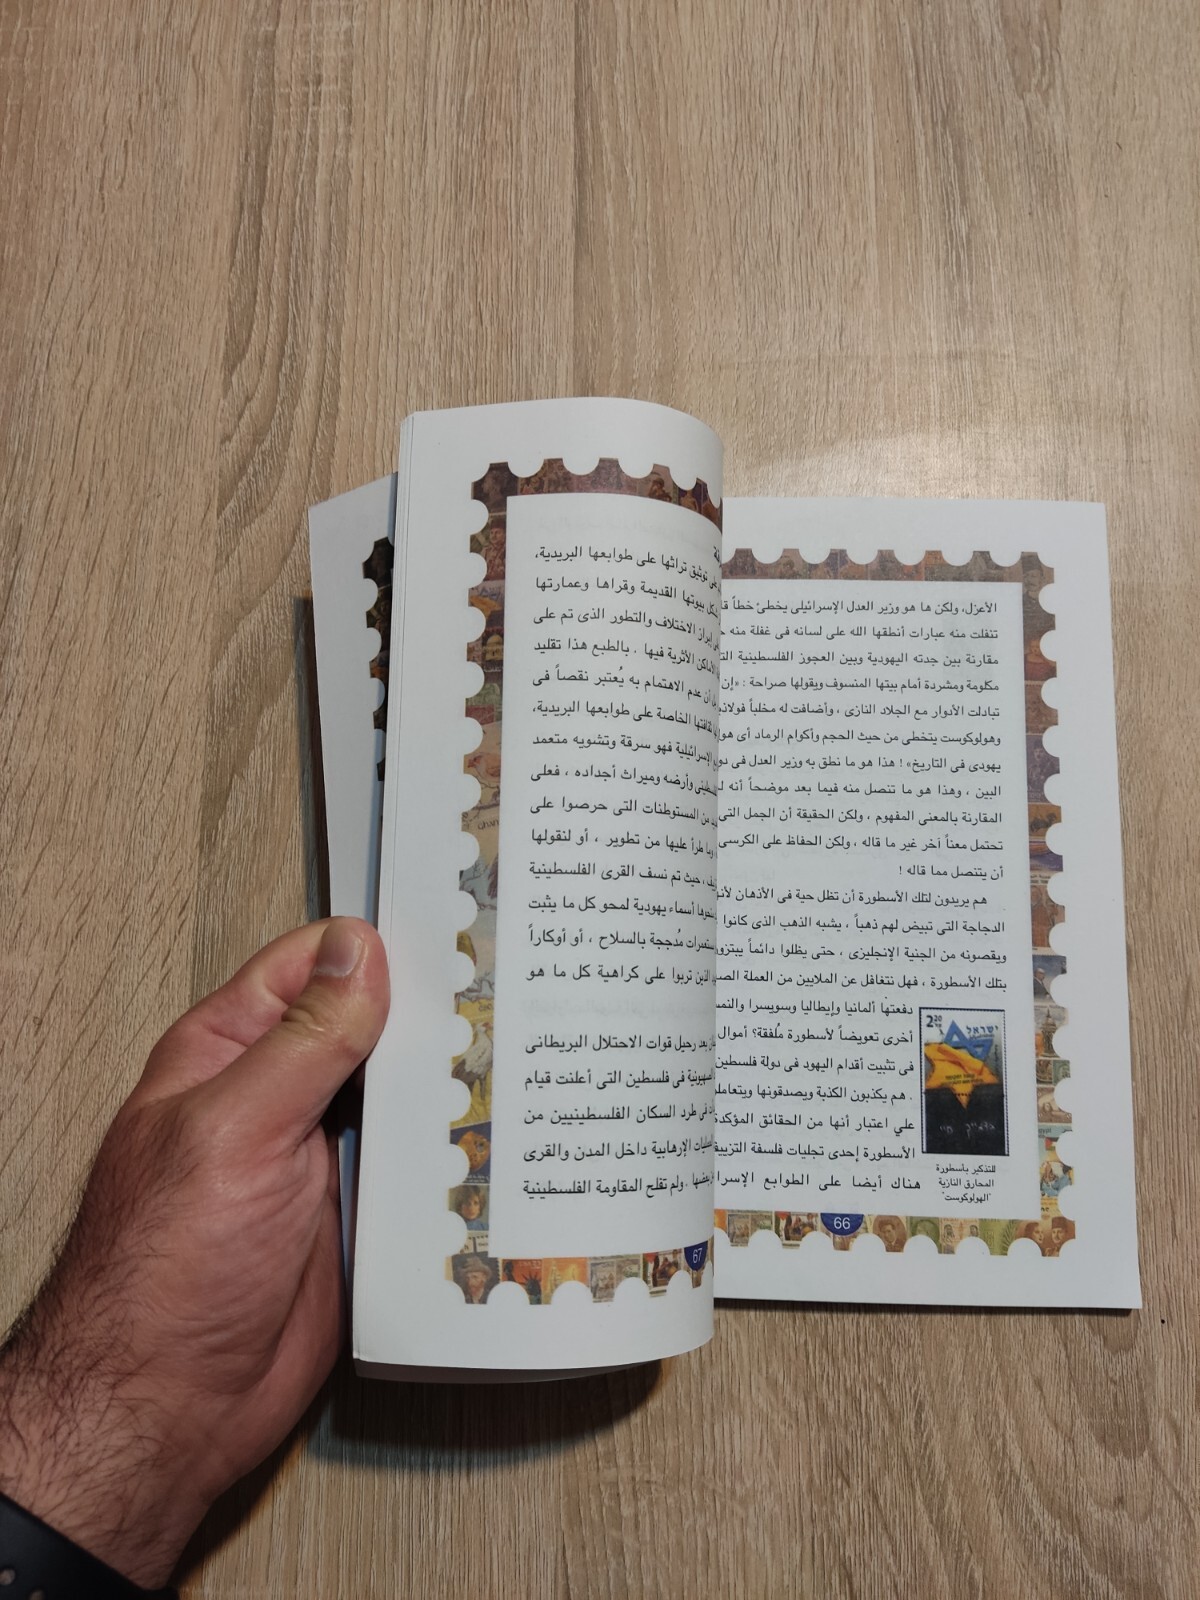 الأعزل، ولكن ها هو وزير العدل الإسرائيلى يخطئ خطأ
تنفلت منه عبارات أنطقها الله على لسانه فى غفلة منه
مقارنة بين جدته اليهودية وبين العجوز الفلسطينية
مكلومة ومشردة أمام بيتها المنسوف ويقولها صراحة : «إن
تبادلت الأدوار مع الجلاد النازى ، وأضافت له مخلباً
وهولوكوست يتخطى من حيث الحجم وأكوام الرماد أى
يهودى فى التاريخ» ! هذا هو ما نطق به وزير العدل فى
البين ، وهذا هو ما تنصل منه فيما بعد موضحاً أنه
المقارنة بالمعنى المفهوم ، ولكن الحقيقة أن الجمل التى
تحتمل معناً آخر غير ما قاله ، ولكن الحفاظ على الكرسى
أن يتنصل مما قاله !
هم يريدون لتلك الأسطورة أن تظل حية فى الأذهان
الدجاجة التى تبيض لهم ذهباً ، يشبه الذهب الذى كانوا
ويقصونه من الجنية الإنجليزى ، حتى يظلوا دائماً
بتلك الأسطورة ، فهل نتغافل عن الملايين من العملة
دفعتها ألمانيا وإيطاليا وسويسرا
أخرى تعويضاً لأسطورة مُلفقة؟ أموال
فى تثبيت أقدام اليهود فى دولة فلسطين
. هم يكذبون الكذبة ويصدقونها
علي اعتبار أنها من الحقائق المؤكدة
الأسطورة إحدى تجليات فلسفة
هناك أيضا على الطوابع
2.20
ישראל
للتذكير بأسطورة
المحارق النازية
"الهولوكوست"
66
توثيق تراثها على طوابعها البريدية،
بيوتها القديمة وقراها وعمارتها
إبراز الاختلاف والتطور الذى تم على
الأماكن الأثرية فيها . بالطبع هذا تقليد
أن عدم الاهتمام به يُعتبر نقصاً فى
ثقافتها الخاصة على طوابعها البريدية،
الإسرائيلية فهو سرقة وتشويه متعمد
وأرضه وميراث أجداده ، فعلى
من المستوطنات التى حرصوا على
طرأ عليها من تطوير ، أو لنقولها
، حيث تم نسف القرى الفلسطينية
أسماء يهودية لمحو كل ما يثبت
مُدججة بالسلاح ، أو أوكاراً
الذين تربوا على كراهية كل ما هو
بعد رحيل قوات الاحتلال البريطانى
الصهيونية فى فلسطين التى أعلنت قيام
فى طرد السكان الفلسطينيين من
الإرهابية داخل المدن والقرى
. ولم تفلح المقاومة الفلسطينية
67